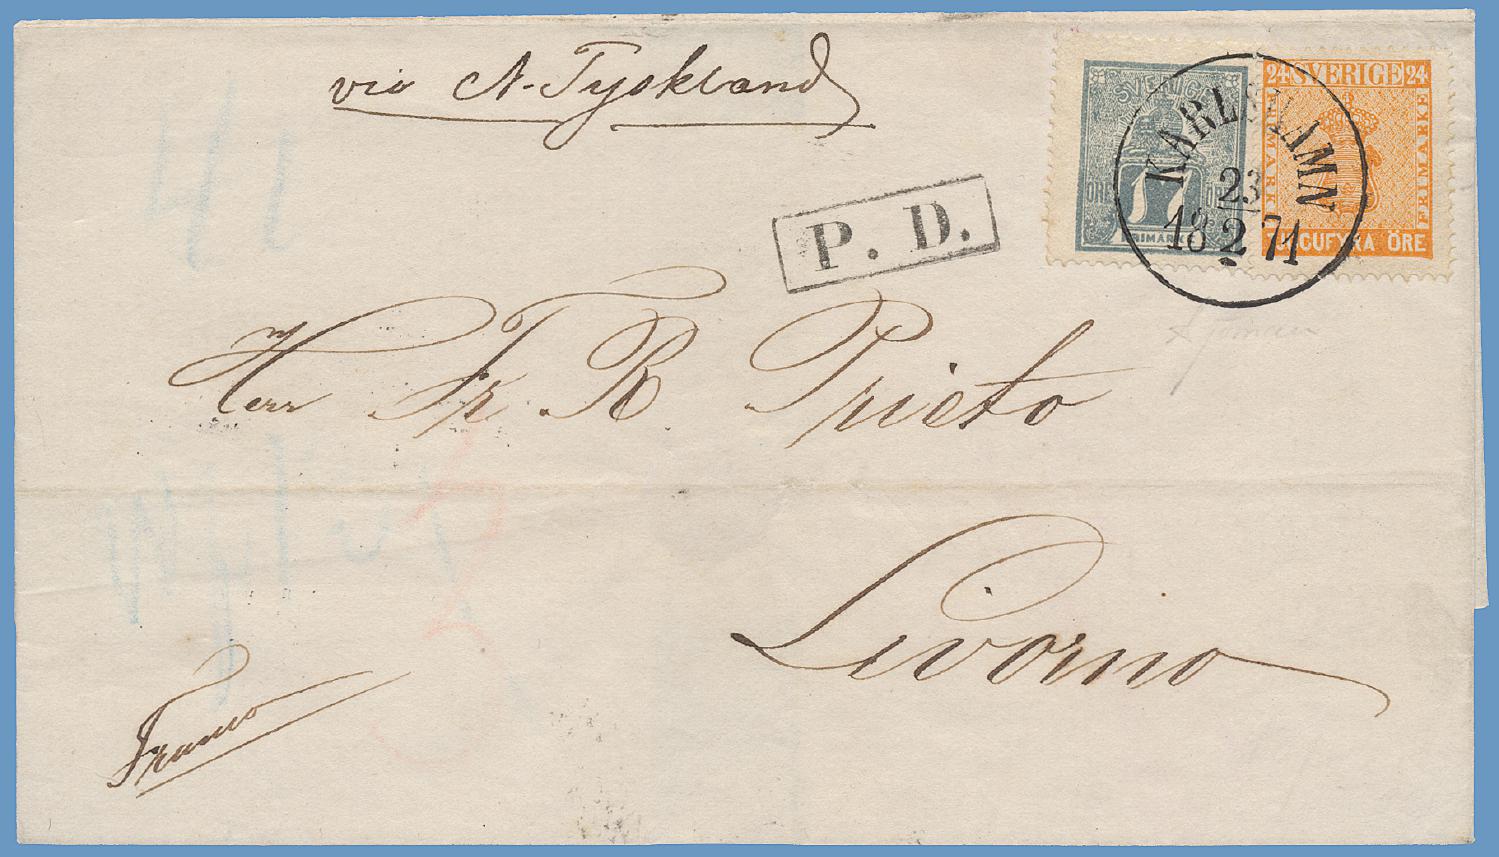 via N. Tyskland
P. D.
SVERIGE
ÖRE 17 ÖRE
FRIMÄRKE
24 SVERIGE 24
FRIMÄRKE
FRIMÄRKE
TJUGUFYRA ÖRE
KARLSHAMN
23
18 2 71
Herr Fr. R Prieto
Livorno
Franco